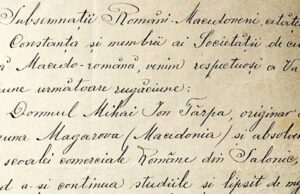 Subsemnații Români Macedoneni, cetățe
Constanța și membrii ai Societății de cu
ă Macedo-română, venim respectuoși a Vă
une următoare rugăciune:
Domnul Mihai Ion Țârpa, originar d
una Magarova (Macedonia) și absolve
școalei comerciale Române din Salonic,
d a-și continua studiile și lipsit de m